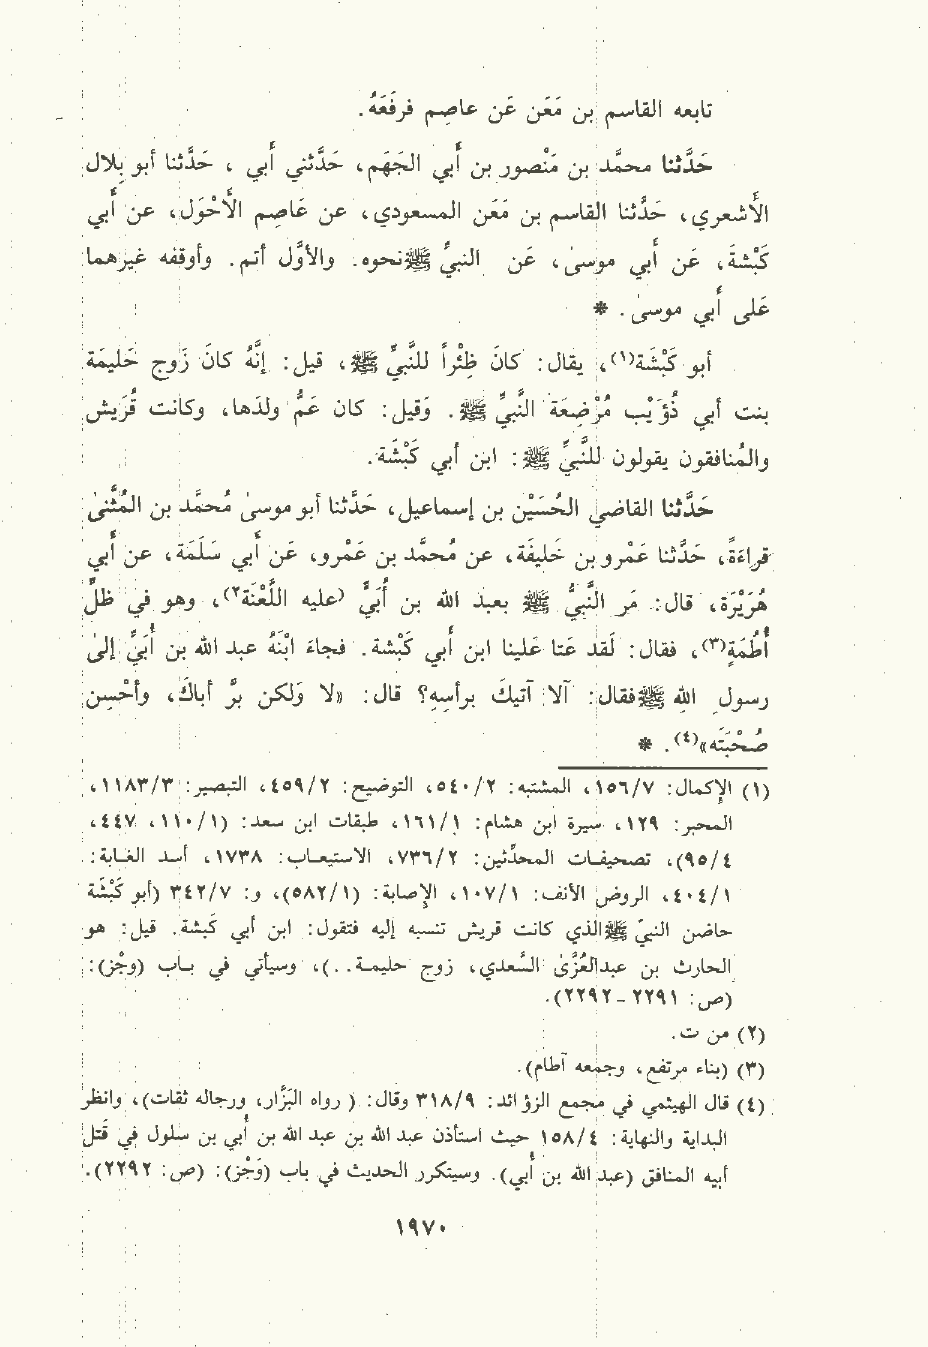 تابعه القاسم بن مَعَن عَن عاصِم فرفَعَهُ.
حَدَّثنا محمَّد بن مَنْصور بن أَبي الجَهَم، حَدَّثني أَبي ، حَدَّثنا أبو بِلال
الأَشعري، حَدَّثنا القاسم بن مَعَن المسعودي، عن عَاصِم الأَحْوَل، عن أَبي
كَبْشةَ، عَن أَبي موسىٰ، عَن النبيِّ ﷺ نحوه. والأوَّل أتم. وأوقفه غيرهما
عَلى أَبي موسىٰ. *
أبو كَبْشَة(١)، يقال: كانَ ظِئْراً للنَّبيِّ ﷺ، قيل: إنَّهُ كانَ زَوج حَليمَة
بنت أبي ذُؤَيْب مُرْضِعَة النَّبيِّ ﷺ. وَقيل: كان عَمُّ ولدَها، وكانت قُرَيش
والمُنافقون يقولون للنَّبيِّ ﷺ: ابن أبي كَبْشَة.
حَدَّثنا القاضي الحُسَيْن بن إسماعيل، حَدَّثنا أبو موسىٰ مُحمَّد بن المُثَّنىٰ
قراءَةً، حَدَّثنا عَمْرو بن خَليفَة، عن مُحمَّد بن عَمْرو، عَن أَبي سَلَمَة، عن أَبي
هُرَيْرَة، قال: مَر النَّبيُّ ﷺ بعبد الله بن أُبَيٍّ (عليه اللَّعْنَة٢)، وهو في ظلِّ
أُطُمَةٍ(٣)، فقال: لَقد عَتا عَلينا ابن أَبي كَبْشة. فجاءَ ابْنَهُ عبد الله بن أُبَيِّ إلىٰ
رسولِ اللهِ ﷺ فقال: آلا آتيكَ برأسِهِ؟ قال: «لا وَلكن برَّ أباكَ، وأحْسِن
صُحْبَتَه»(٤). *
(١) الإكمال: ١٥٦/٧، المشتبه: ٥٤٠/٢، التوضيح: ٤٥٩/٢، التبصير: ١١٨٣/٣،
المحبر: ١٢٩، سيرة ابن هشام: ١٦١/١، طبقات ابن سعد: (١١٠/١، ٤٤٧،
٩٥/٤)، تصحيفات المحدِّثين: ٧٣٦/٢، الاستيعاب: ١٧٣٨، أسد الغابة:
٤٠٤/١، الروض الأنف: ١٠٧/١، الإصابة: (٥٨٢/١)، و: ٣٤٢/٧ (أبو كَبْشَة
حاضن النبيّ ﷺ الذي كانت قريش تنسبه إليه فتقول: ابن أبي كَبشة. قيل: هو
الحارث بن عبدالعُزَّىٰ السَّعدي، زوج حليمة..)، وسيأتي في باب (وجْز):
(ص: ٢٢٩١ - ٢٢٩٢).
(٢) من ت.
(٣) (بناء مرتفع، وجمعه آطام).
(٤) قال الهيثمي في مجمع الزؤائد: ٣١٨/٩ وقال: ( رواه البَزَّار، ورجاله ثقات)، وانظر
البداية والنهاية: ١٥٨/٤ حيث استأذن عبد الله بن عبد الله بن أُبي بن سلول في قَتل
أبيه المنافق (عبد الله بن أُبي). وسيتكرر الحديث في باب (وَجْز): (ص: ٢٢٩٢).
١٩٧٠